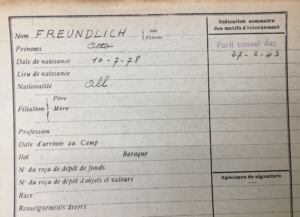 Indication sommaire
des motifs d'internement
Nom FREUNDLICH
Prénoms Otto
Parti convoi du:
Date de naissance 10-7-78
Lieu de naissance
Nationalité all
Filiation Père
Mère
Profession
Date d'arrivée au Camp
Ilot Baraque
N° du reçu de dépôt de fonds
N° du reçu de dépôt d'objets et valeurs
Spécimen de signature
Race
Renseignements divers